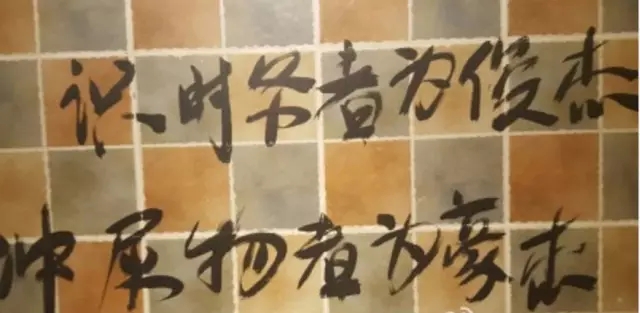 识时务者为俊杰
冲屎物者为豪杰